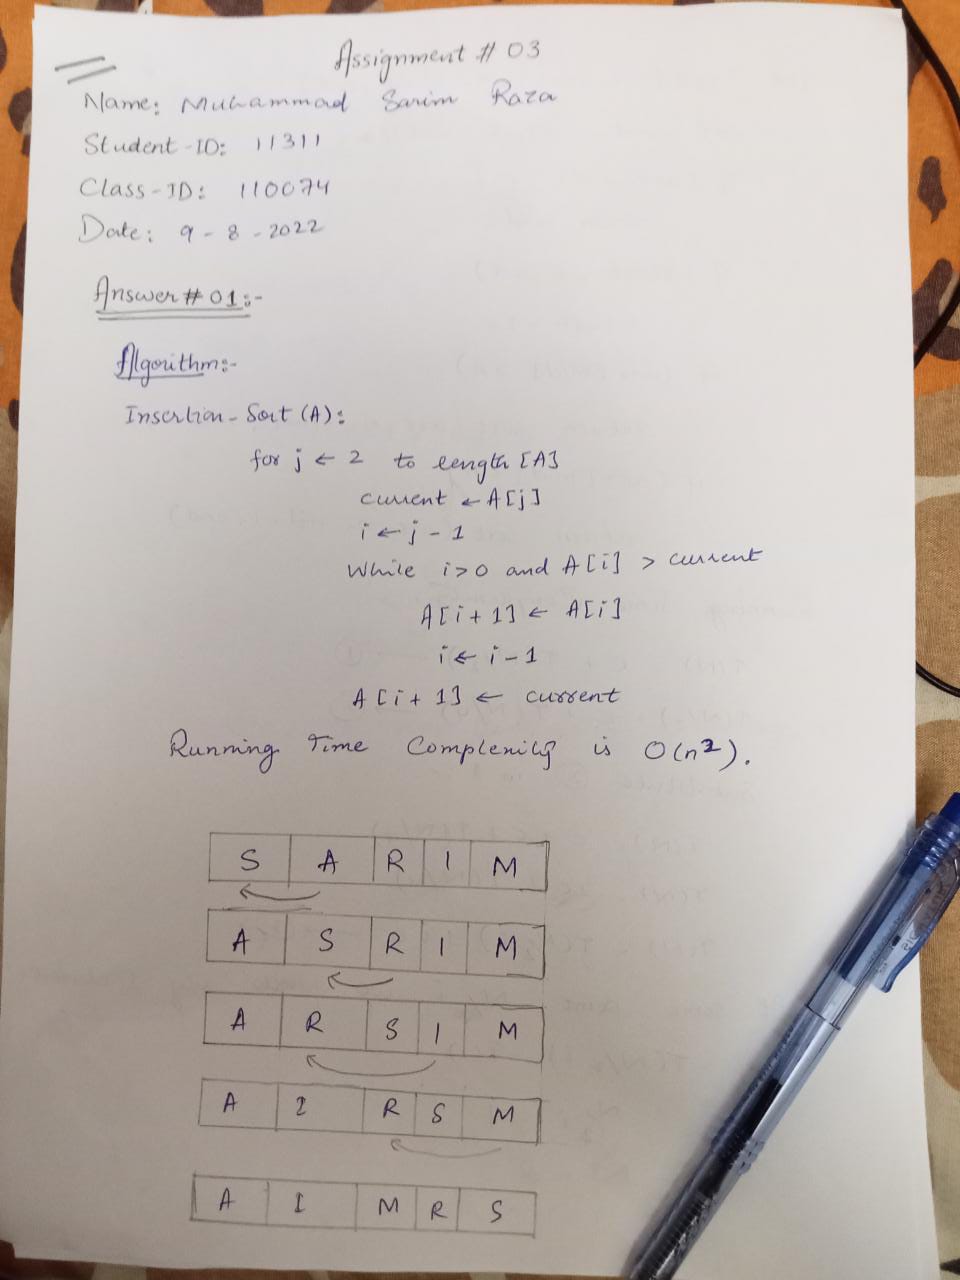 Assignment # 03
Name: Muhammad Sarim Raza
Student-ID: 11311
Class-ID: 110074
Date: 9-8-2022
Answer # 01:-
Algorithm:-
Insertion-Sort (A):
for j ← 2 to length [A]
current ← A[j]
i ← j - 1
While i>0 and A[i] > current
A[i+1] ← A[i]
i ← i-1
A[i+1] ← current
Running Time Complexity is O(n²).
S A R I M
A S R I M
A R S I M
A I R S M
A I M R S